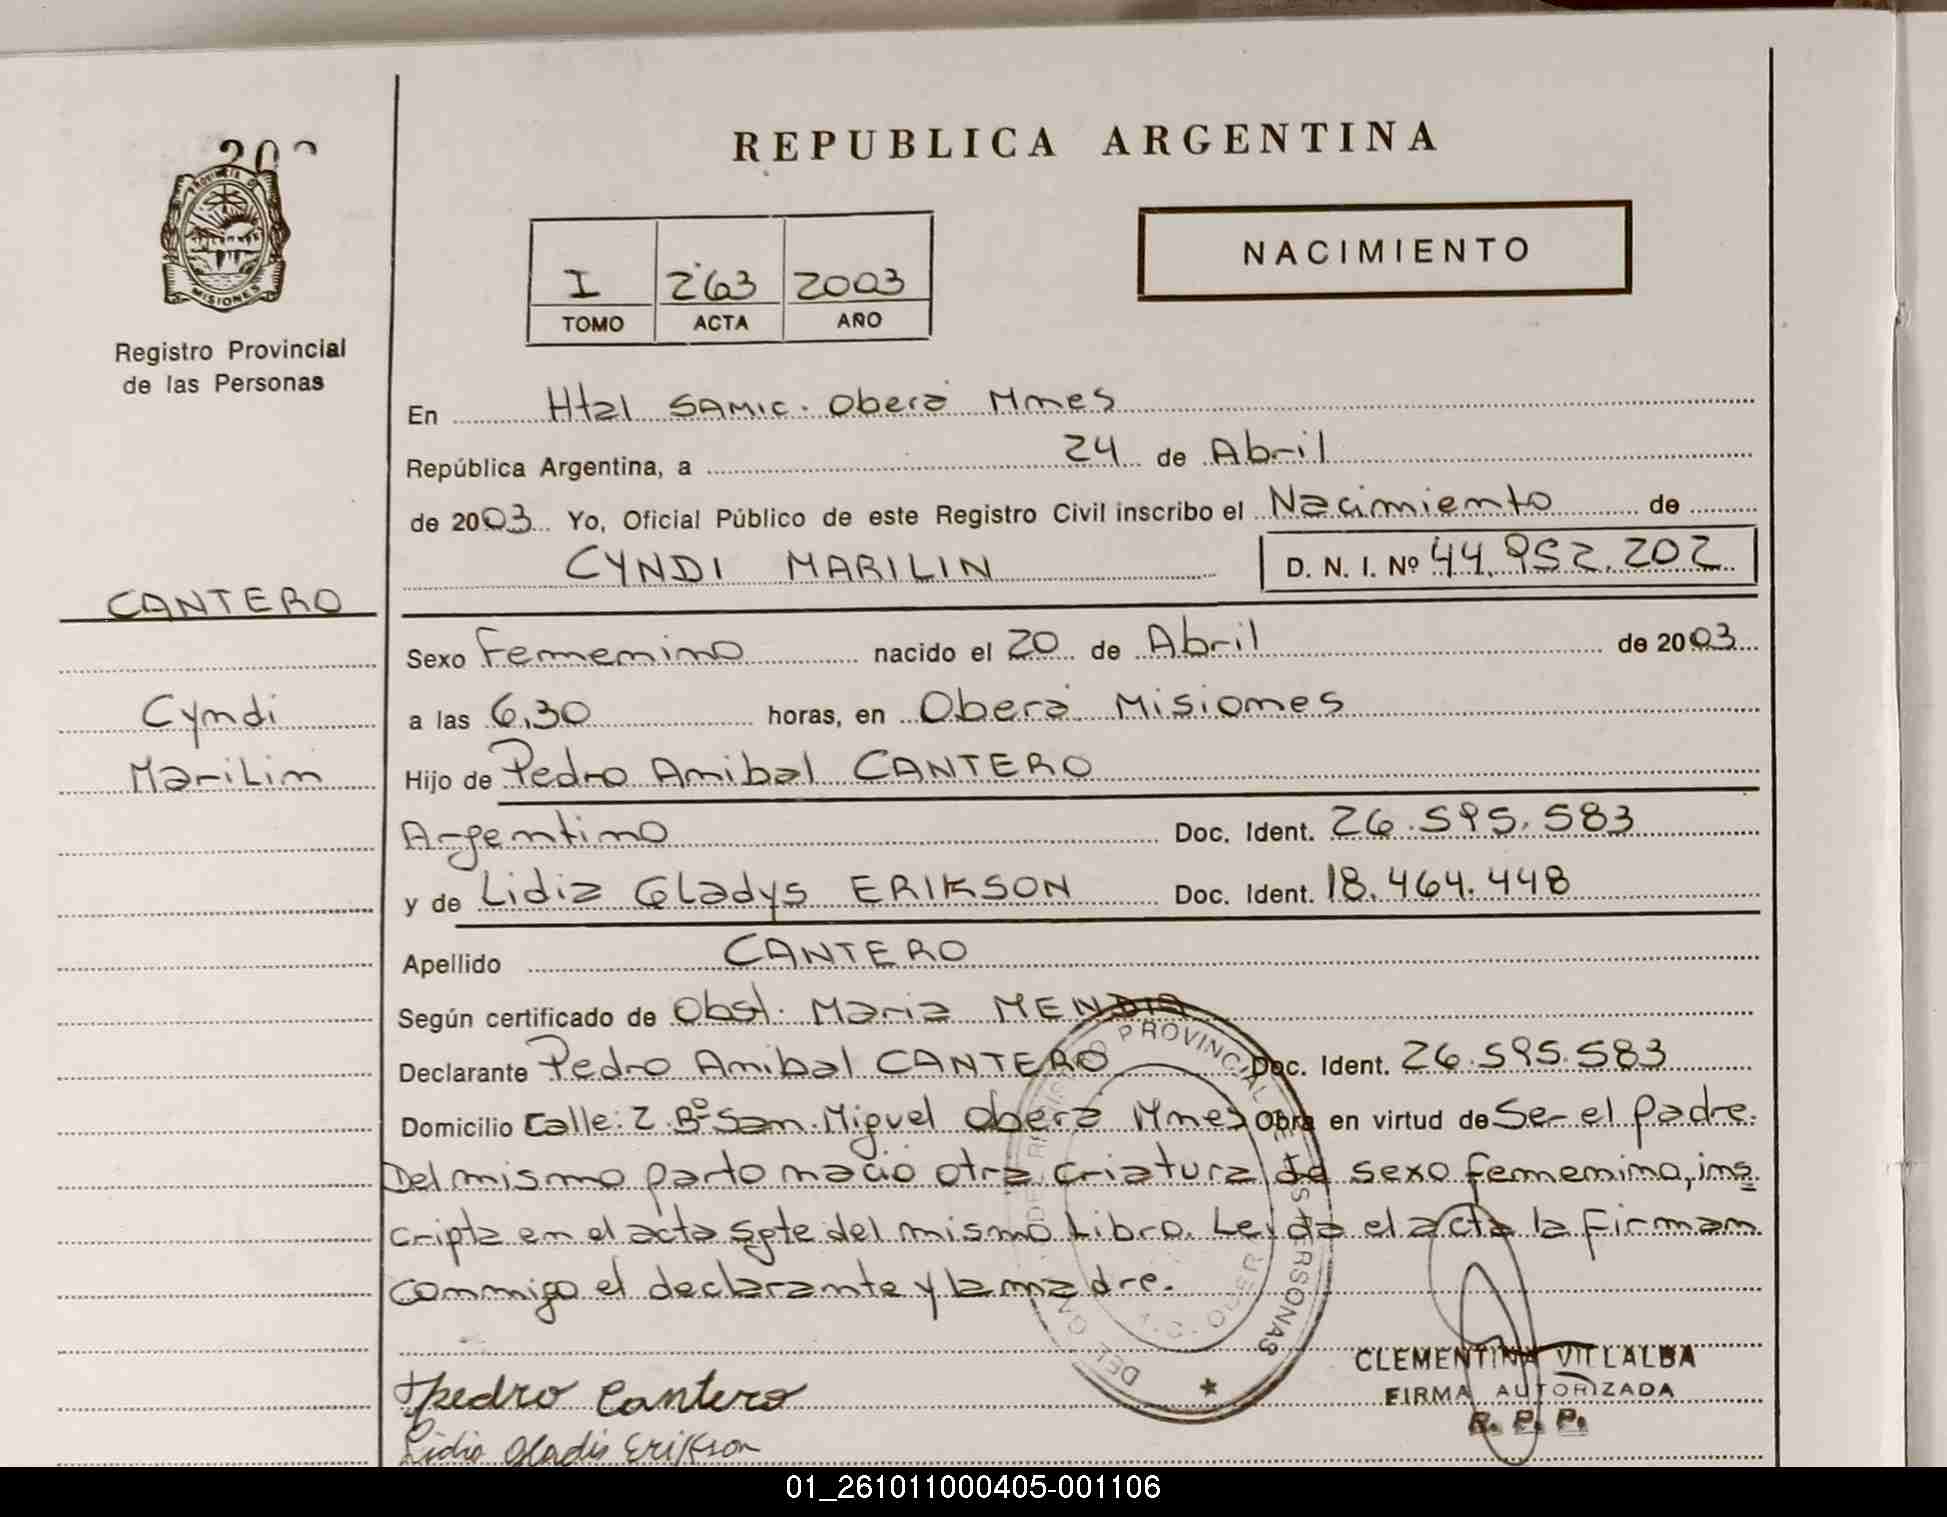 REPUBLICA ARGENTINA
PROVINCIA DE
MISIONES
Registro Provincial
de las Personas
I 263 2003
TOMO ACTA AÑO
NACIMIENTO
En Htal SAMIC. Oberá Mnes
República Argentina, a 24 de Abril
de 2003 Yo, Oficial Público de este Registro Civil inscribo el Nacimiento de
CYNDI MARILIN D. N. I. Nº 44.952.202
CANTERO
Cyndi
Marilin
Sexo Femenino nacido el 20 de Abril de 2003
a las 6,30 horas, en Oberá Misiones
Hijo de Pedro Anibal CANTERO
Argentino Doc. Ident. 26.595.583
y de Lidia Gladys ERIKSON Doc. Ident. 18.464.448
Apellido CANTERO
Según certificado de Obst. Maria MENDIA
Declarante Pedro Anibal CANTERO Doc. Ident. 26.595.583
Domicilio Calle: 2 Bº San Miguel Oberá Mnes Obra en virtud de Ser el padre.
Del mismo parto nació otra criatura de sexo femenino, ins
cripta en el acta sgte del mismo Libro. Leida el acta la firman
conmigo el declarante y la madre.
PROVINCIAL DE LAS PERSONAS
CLEMENTINA VILLALBA
FIRMA AUTORIZADA
R. P. P.
Pedro Cantero
Lidia Gladis Erikson
01_261011000405-001106